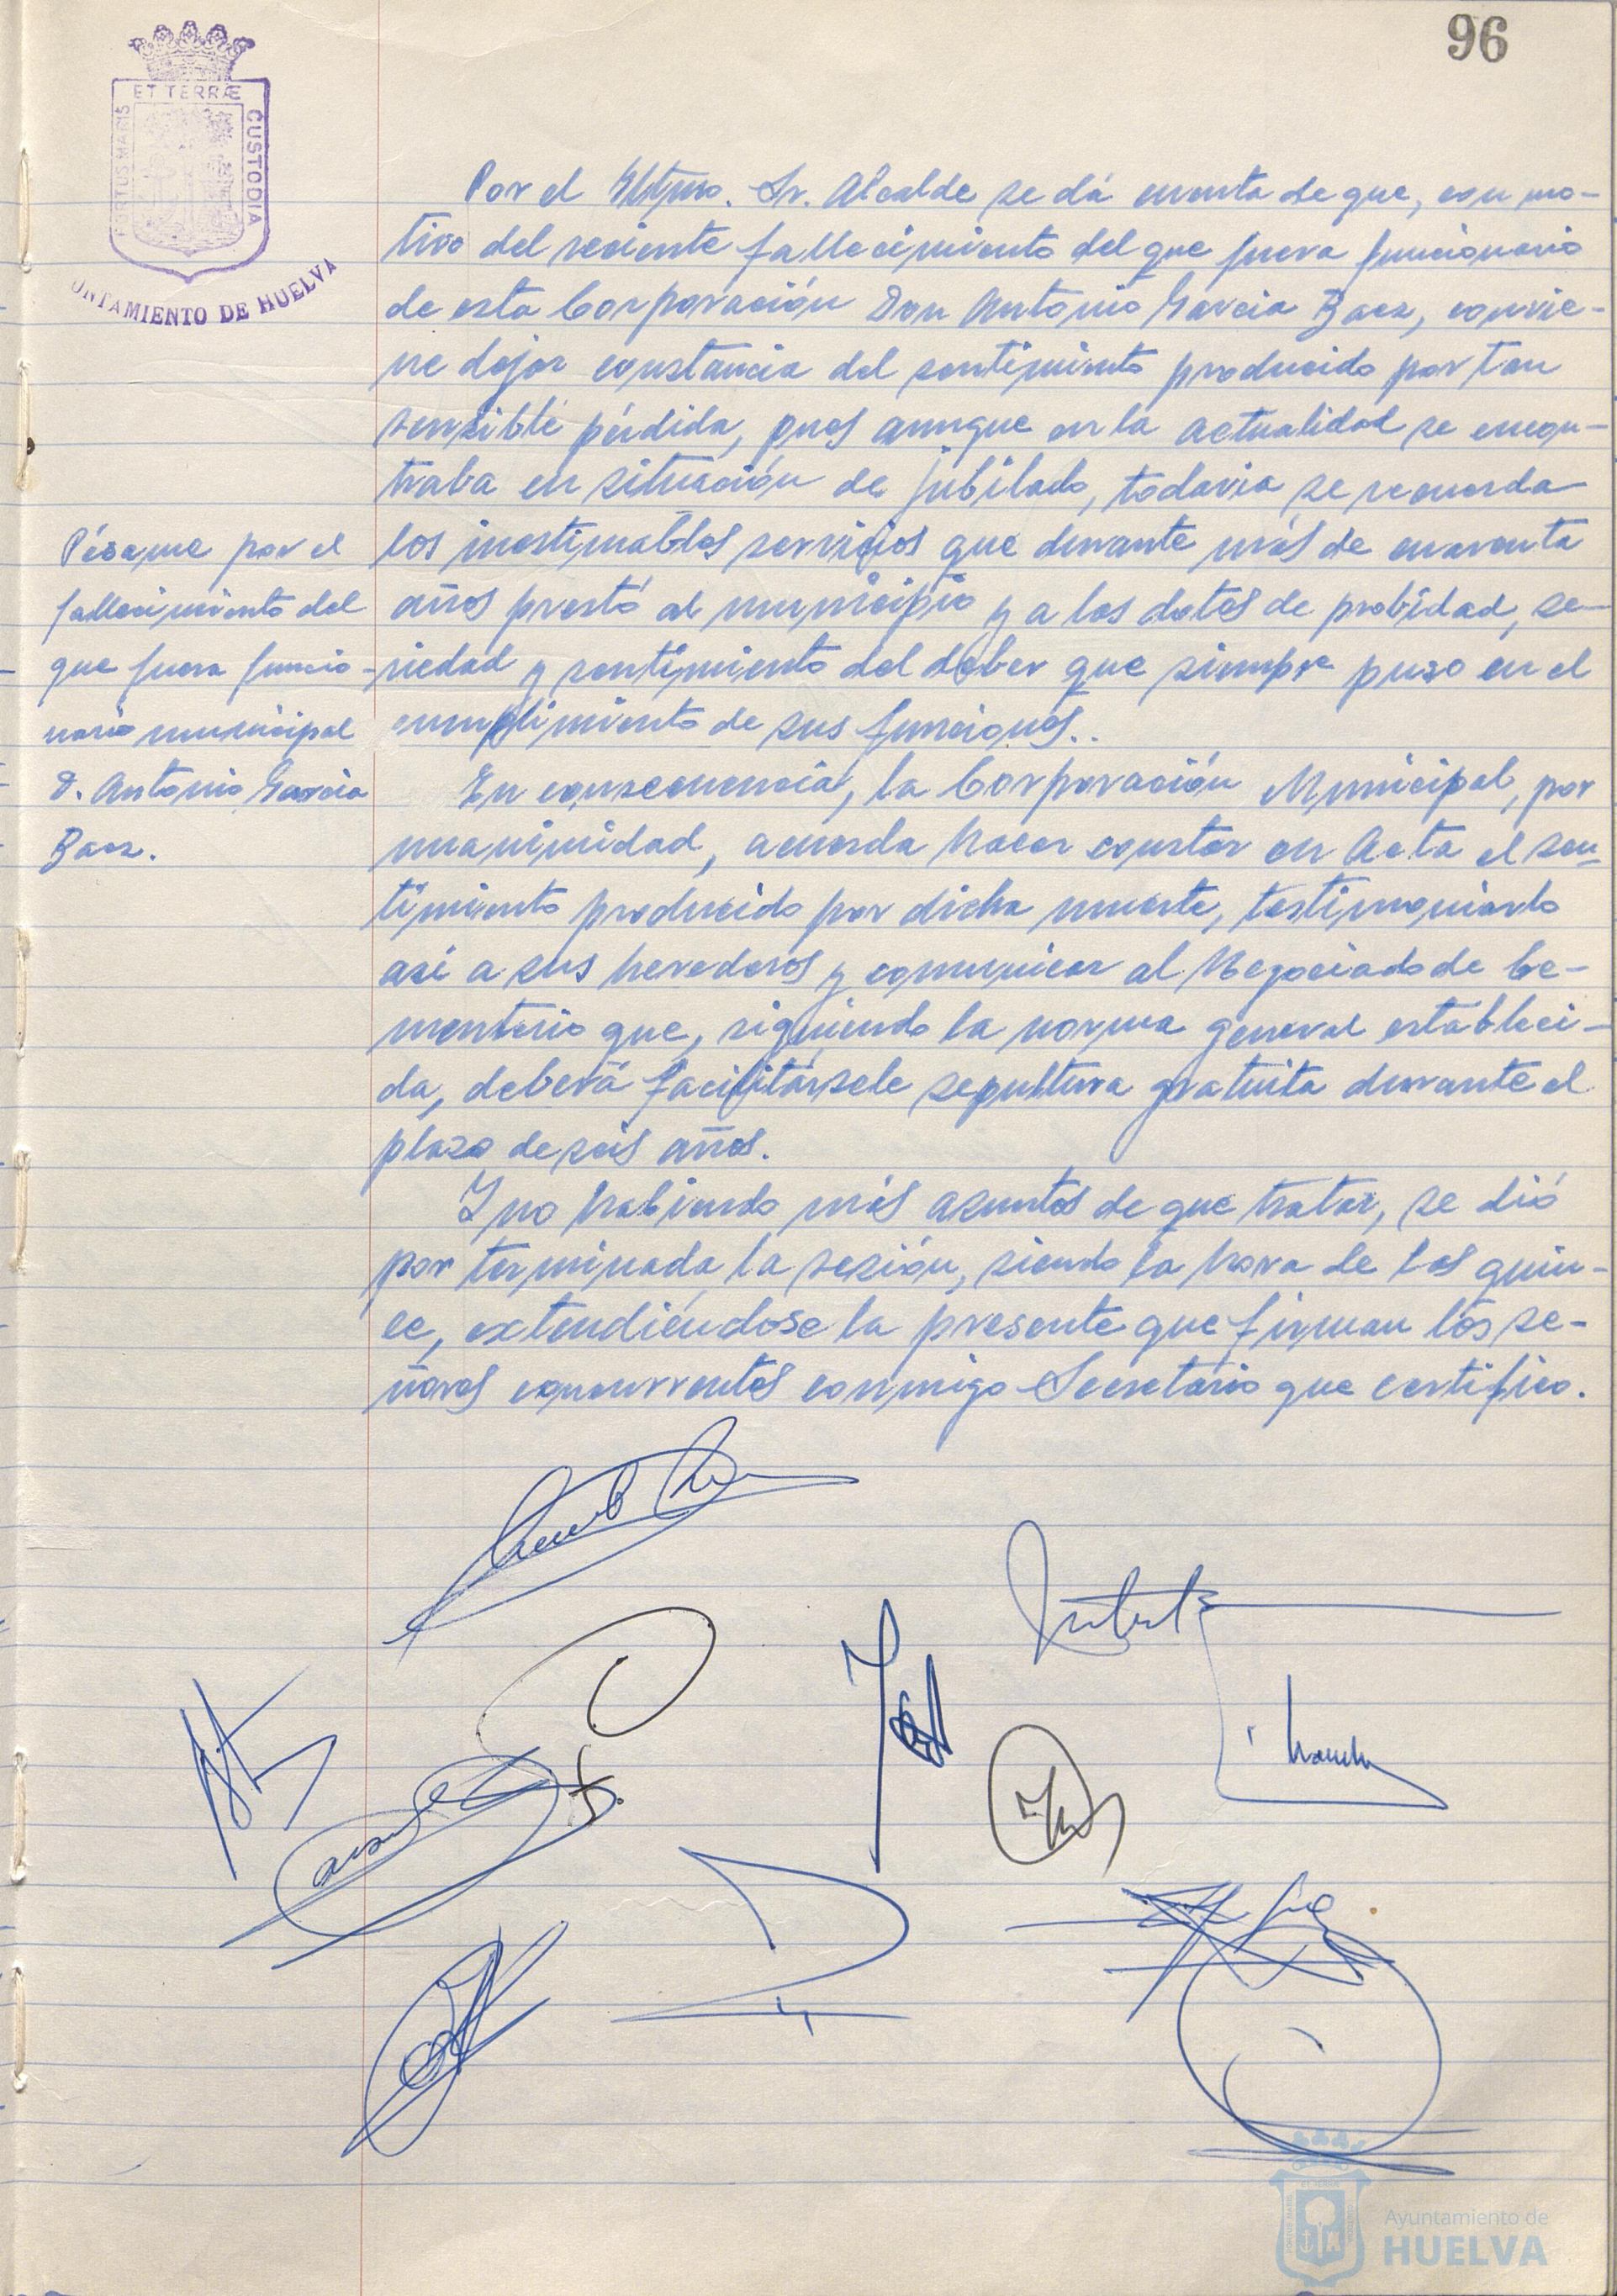 96
ET TERRÆ
PORTUS MARIS
CUSTODIA
UNTAMIENTO DE HUELVA
Por el Iltmo. Sr. Alcalde se dá cuenta de que, con mo-
tivo del reciente fallecimiento del que fuera funcionario
de esta Corporación Don Antonio Garcia Baez, convie-
ne dejar constancia del sentimiento producido por tan
sensible pérdida, pues aunque en la actualidad se encon-
traba en situación de jubilado, todavia se recuerda
los inestimables servicios que durante más de cuarenta
años prestó al municipio y a las dotes de probidad, se-
riedad y sentimiento del deber que siempre puso en el
cumplimiento de sus funciones..
Pésame por el
fallecimiento del
que fuera funcio-
nario municipal
D. Antonio Garcia
Baez.
En consecuencia, la Corporación Municipal, por
unanimidad, acuerda hacer constar en Acta el sen-
timiento producido por dicha muerte, testimoniarlo
asi a sus herederos y comunicar al Negociado de Ce-
menterio que, siguiendo la norma general estableci-
da, deberá facilitársele sepultura gratuita durante el
plazo de seis años.
Y no habiendo más asuntos de que tratar, se dió
por terminada la sesión, siendo la hora de las quin-
ce, extendiéndose la presente que firman los se-
ñores concurrentes conmigo Secretario que certifico.
Ayuntamiento de
HUELVA